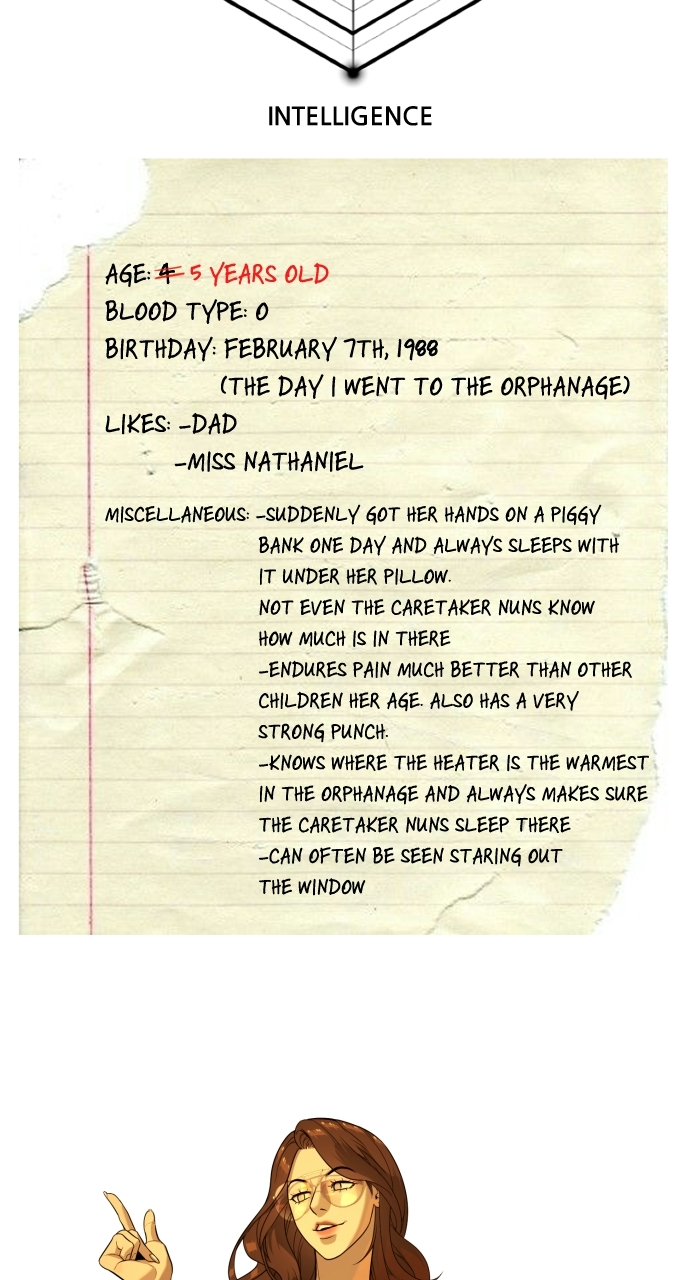 INTELLIGENCE
AGE: 4 5 YEARS OLD
BLOOD TYPE: O
BIRTHDAY: FEBRUARY 7TH, 1988
(THE DAY I WENT TO THE ORPHANAGE)
LIKES: -DAD
-MISS NATHANIEL
MISCELLANEOUS: -SUDDENLY GOT HER HANDS ON A PIGGY
BANK ONE DAY AND ALWAYS SLEEPS WITH
IT UNDER HER PILLOW.
NOT EVEN THE CARETAKER NUNS KNOW
HOW MUCH IS IN THERE
-ENDURES PAIN MUCH BETTER THAN OTHER
CHILDREN HER AGE. ALSO HAS A VERY
STRONG PUNCH.
-KNOWS WHERE THE HEATER IS THE WARMEST
IN THE ORPHANAGE AND ALWAYS MAKES SURE
THE CARETAKER NUNS SLEEP THERE
-CAN OFTEN BE SEEN STARING OUT
THE WINDOW